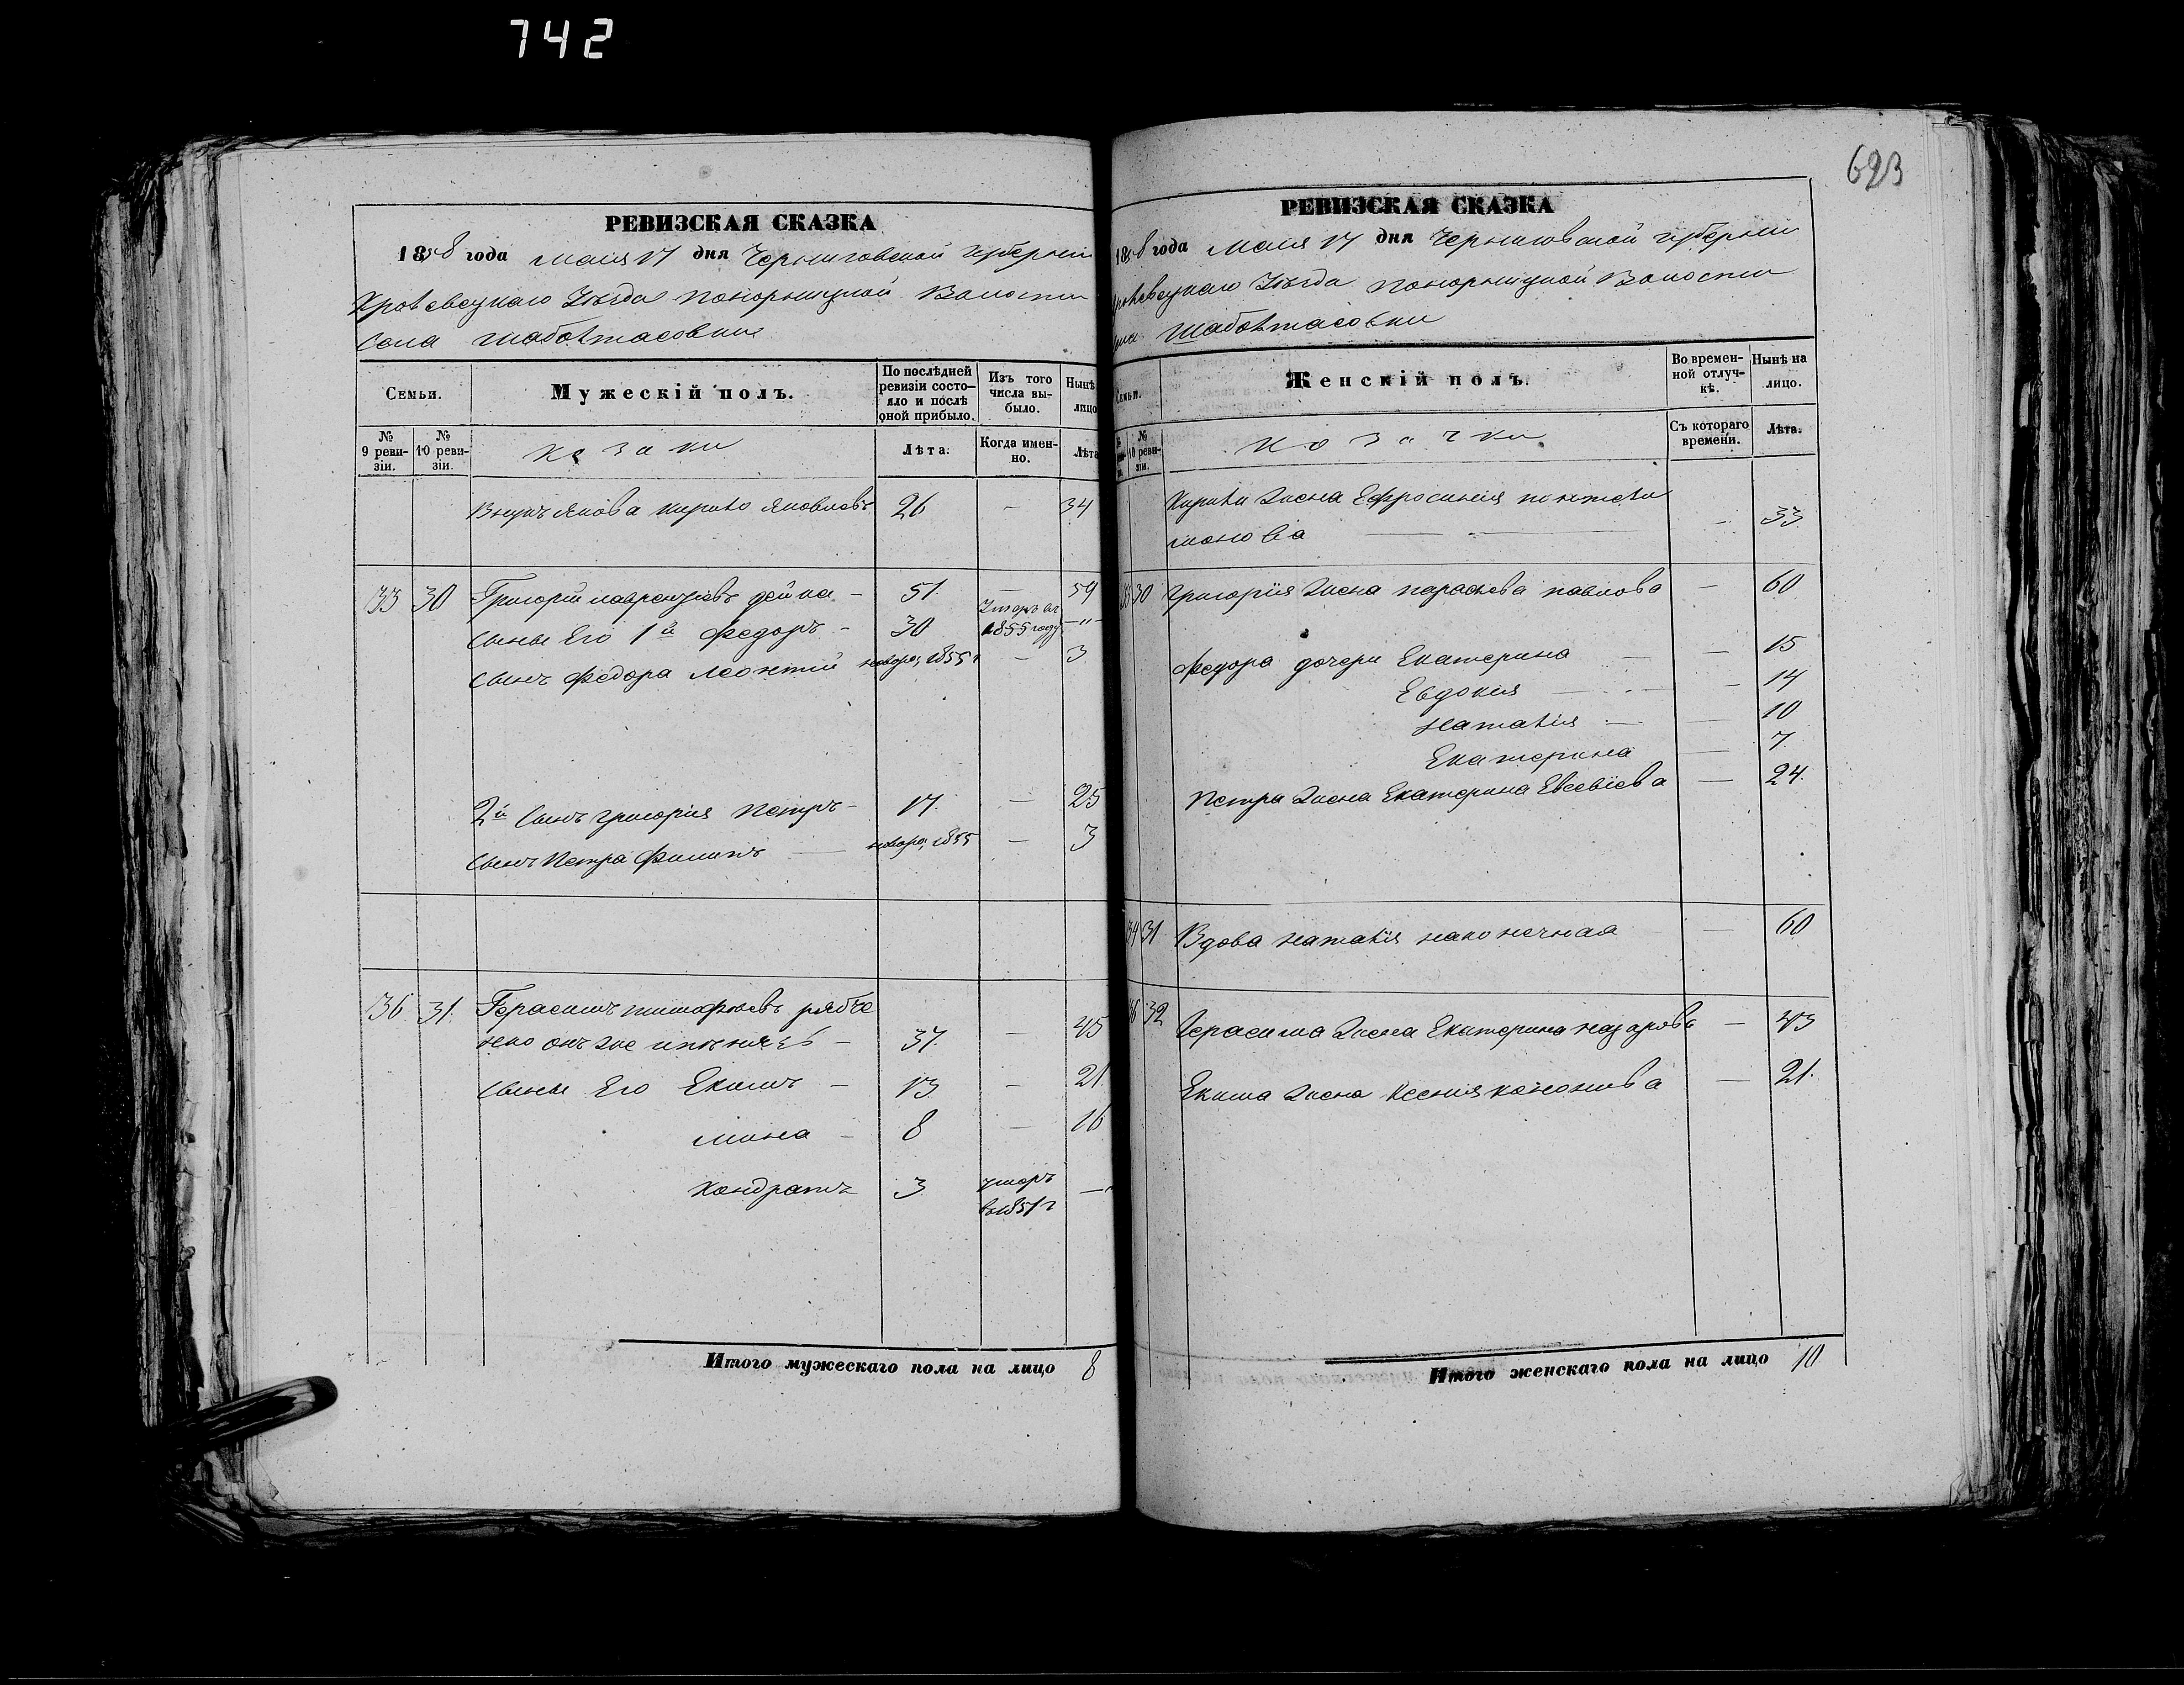 742
693
РЕВИЗСКАЯ СКАЗКА
1858 года Маия 17 дня Черниговской Губернии
Кролевецкаго Уѣзда Понорницкой Волости
Села Шабалтасовки
Семьи.
Мужескій полъ.
По послѣдней ревизіи состояло и послѣ оной прибыло.
Изъ того числа выбыло.
Нынѣ лицо
№ 9 ревизіи.
№ 10 ревизіи.
Козаки
Лѣта.
Когда именно.
Лѣта
Внукъ Якова Кирило Яковлевъ 26 — 34
33 30 Григорій Лаврентіевъ Дейка — 51. — 59
Сыны Его 1й Федоръ — 30 Умеръ въ 1855 году —"—
Сынъ Федора Леонтий новорož 1855 — 3
2й Сынъ Григорія Петръ — 17. — 25
Сынъ Петра Филипъ — новорож 1855 — 3
36. 31. Герасимъ Тимофеевъ Рябче
нко онъ же — 37. — 45
Сыны Его Екимъ — 13 — 21
Мина — 8 — 16
Кондратъ 3 умеръ в 1851 г —
Итого мужескаго пола на лицо 8
РЕВИЗСКАЯ СКАЗКА
1858 года Маия 17 дня Черниговской Губернии
Кролевецкаго Уѣзда Понорницкой Волости
Села Шабалтасовки
Семьи.
Женскій полъ.
Во временной отлучкѣ.
Нынѣ на лицо.
№ 10 ревизіи.
Козачки
Съ котораго времени.
Лѣта.
Кирила Жена Ефросинія Пантели
монова — — 33
33 30 Григорія Жена Параскева Павлова — 60
Федора дочери Екатерина — — 15
Евдокия — — 14
Наталія — — 10
Екатерина — 7.
Петра Жена Екатерина Евсевіева — 24.
34 31 Вдова Наталія Наконечная — 60
36 32 Герасима Жена Екатерина Назарова — 43
Екима Жена Ксения Кононова — 21.
Итого женскаго пола на лицо 10